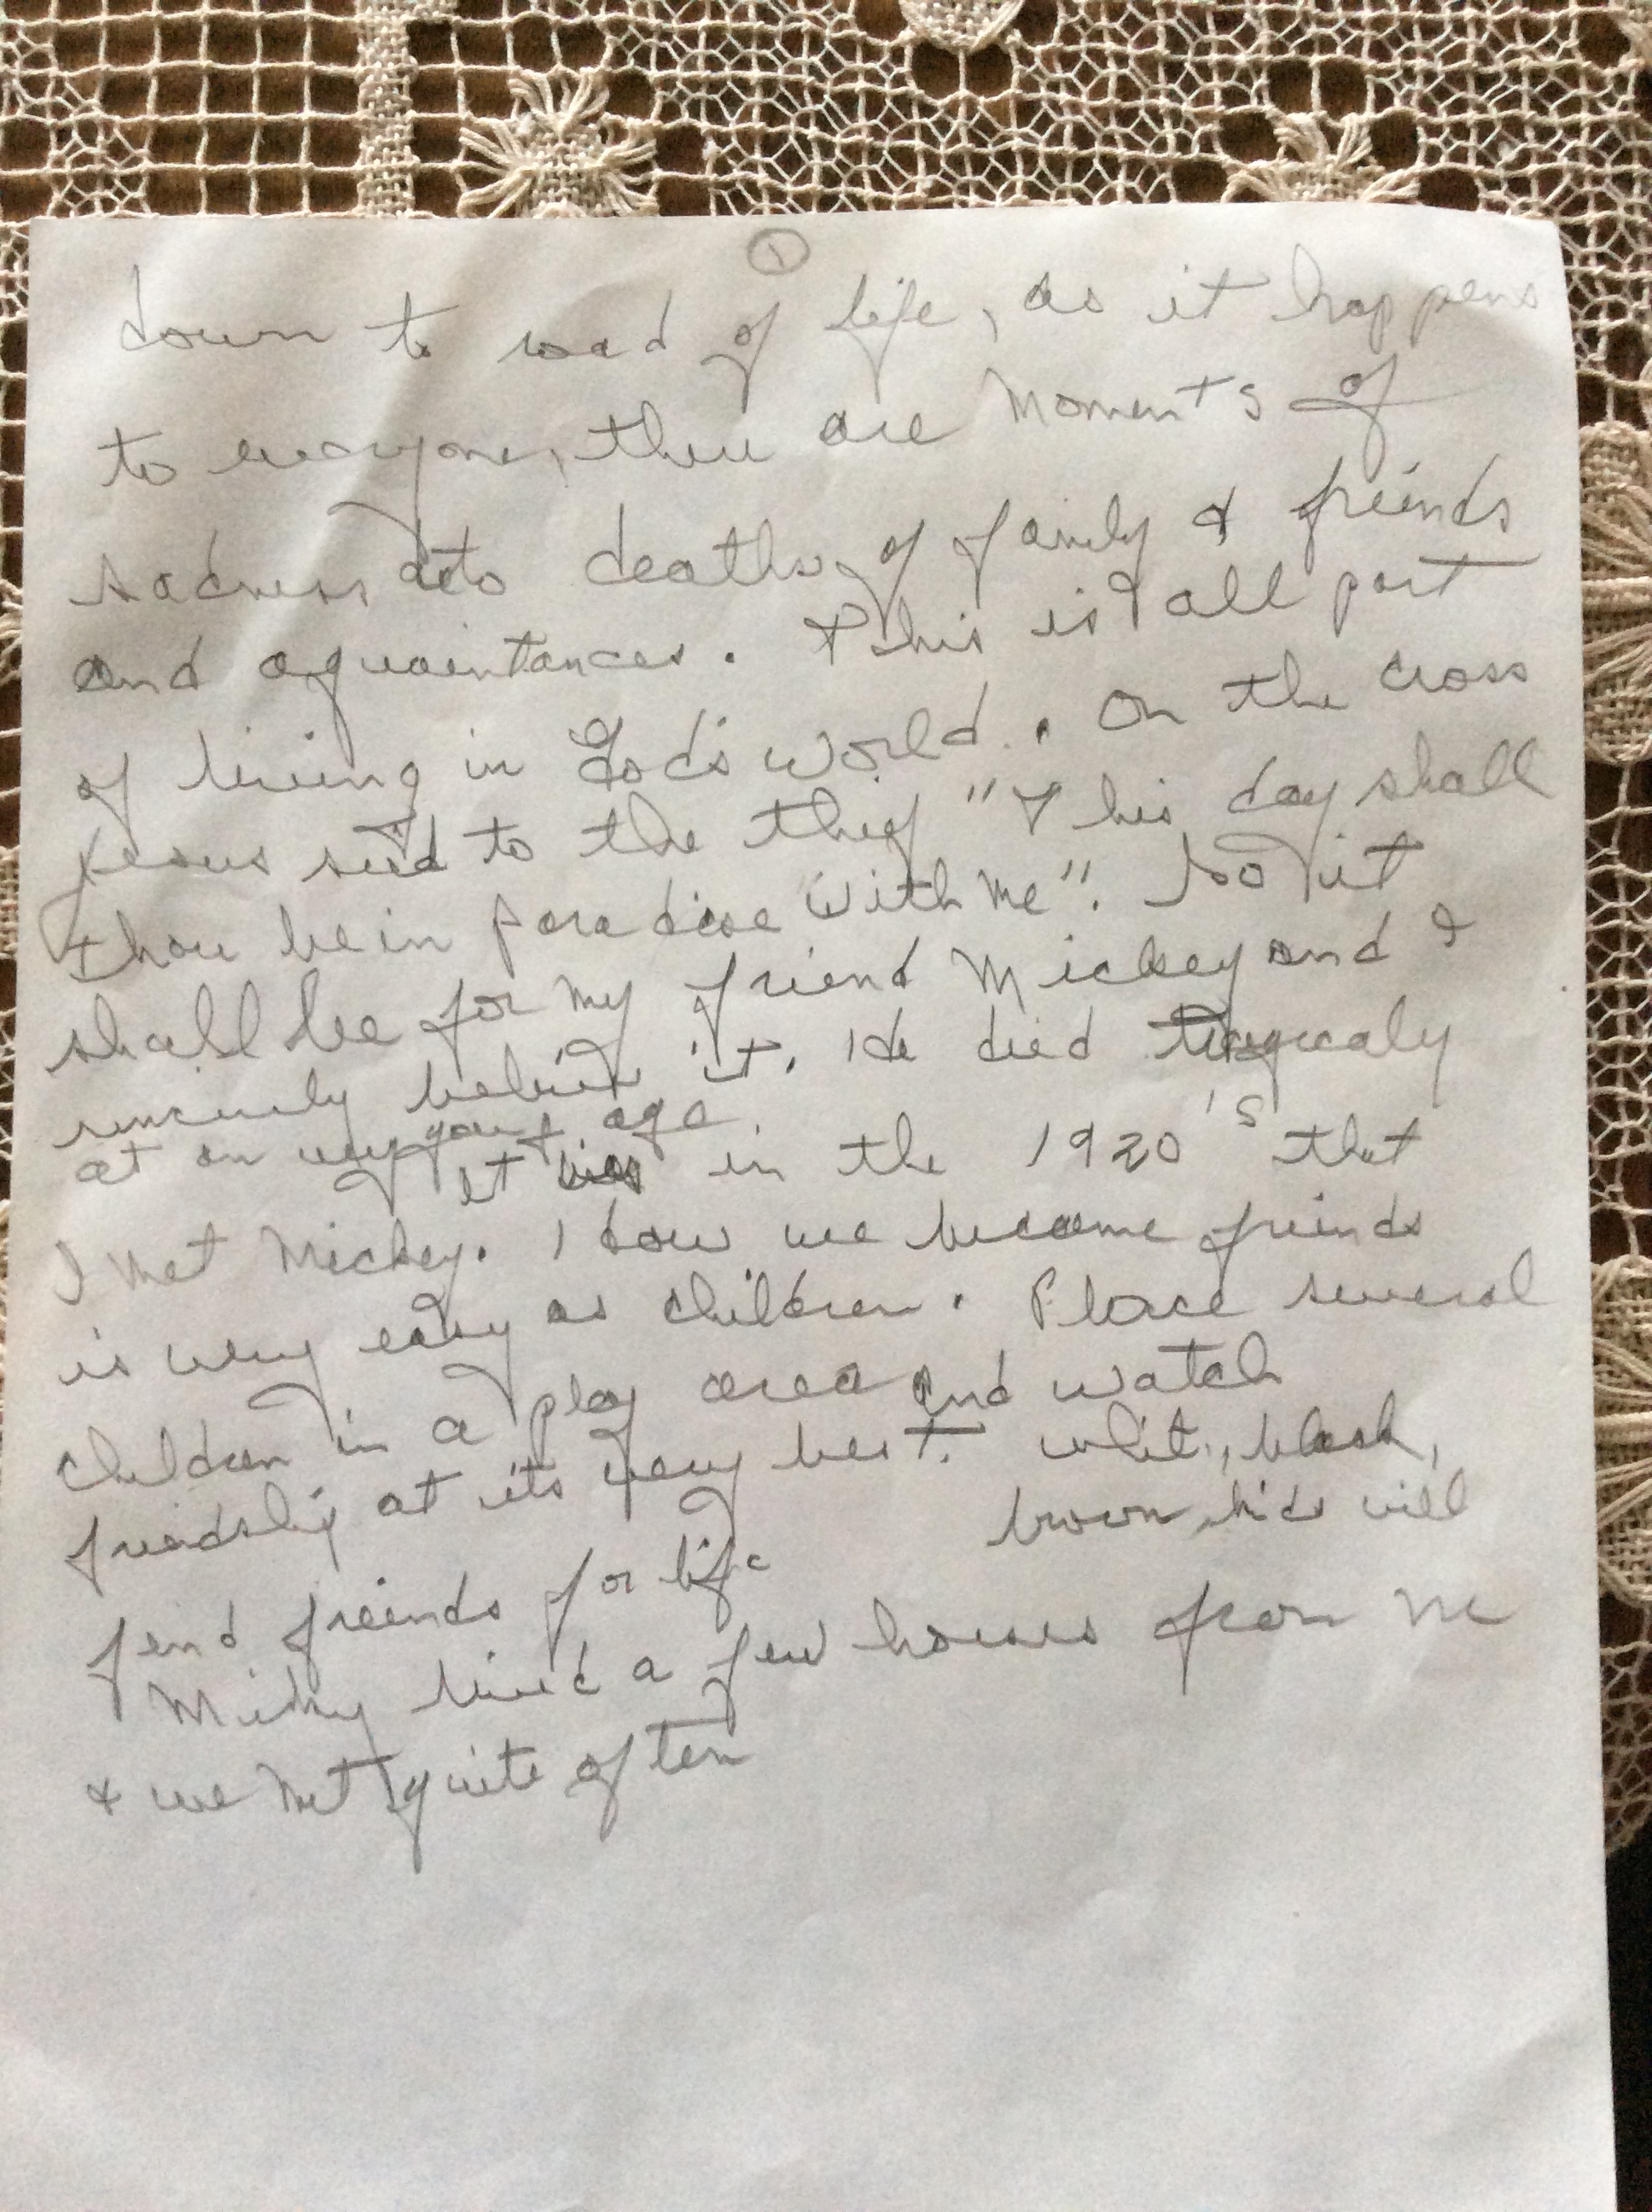 1
down to road of life, as it happens
to everyone, there are moments of
sadness deaths of family & friends
and aquaintances. This is all part
of living in God's world. On the cross
Jesus said to the thief "This day shall
thou be in paradise with me". So it
shall be for my friend Mickey and I
sincerely believe it. He died
at an very young age.
It was in the 1920's that
I met Mickey. How we became friends
is very easy as children. Place several
children in a play area and watch
friendship at its very best. white, black,
brown, kids will
find friends for life
Micky lived a few houses from me
& we met quite often